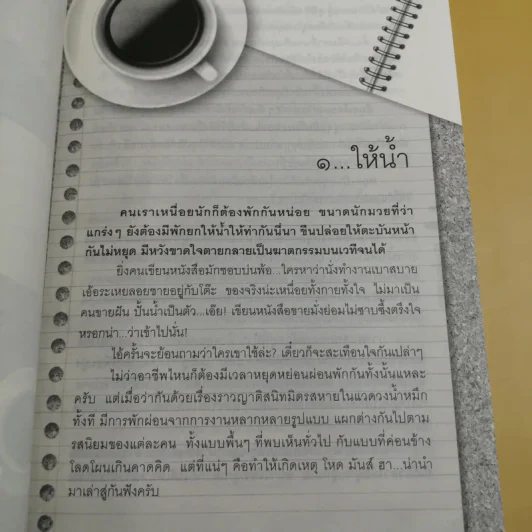 ๑...ให้น้ำ
คนเราเหนื่อยนักก็ต้องพักกันหน่อย ขนาดนักมวยที่ว่า
แกร่งๆ ยังต้องมีพักยกให้น้ำให้ท่ากันนี่นา ขืนปล่อยให้ตะบันหน้า
กันไม่หยุด มีหวังขาดใจตายกลายเป็นฆาตกรรมบนเวทีจนได้
ยิ่งคนเขียนหนังสือมักชอบบ่นพ้อ...ใครหาว่านั่งทำงานเบาสบาย
เอ้อระเหยลอยชายอยู่กับโต๊ะ ของจริงน่ะเหนื่อยทั้งกายทั้งใจ ไม่มาเป็น
คนขายฝัน ปั้นน้ำเป็นตัว...เอ๊ย! เขียนหนังสือขายมั่งย่อมไม่ซาบซึ้งตรึงใจ
หรอกน่า...ว่าเข้าไปนั่น!
ไอ้ครั้นจะย้อนถามว่าใครเขาใช้ล่ะ? เดี๋ยวก็จะสะเทือนใจกันเปล่าๆ
ไม่ว่าอาชีพไหนก็ต้องมีเวลาหยุดหย่อนผ่อนพักกันทั้งนั้นแหละ
ครับ แต่เมื่อว่ากันด้วยเรื่องราวญาติสนิทมิตรสหายในแวดวงน้ำหมึก
ทั้งที มีการพักผ่อนจากการงานหลากหลายรูปแบบ แผกต่างกันไปตาม
รสนิยมของแต่ละคน ทั้งแบบพื้นๆ ที่พบเห็นทั่วไป กับแบบที่ค่อนข้าง
โลดโผนเกินคาดคิด แต่ที่แน่ๆ คือทำให้เกิดเหตุ โหด มันส์ ฮา...น่านำ
มาเล่าสู่กันฟังครับ